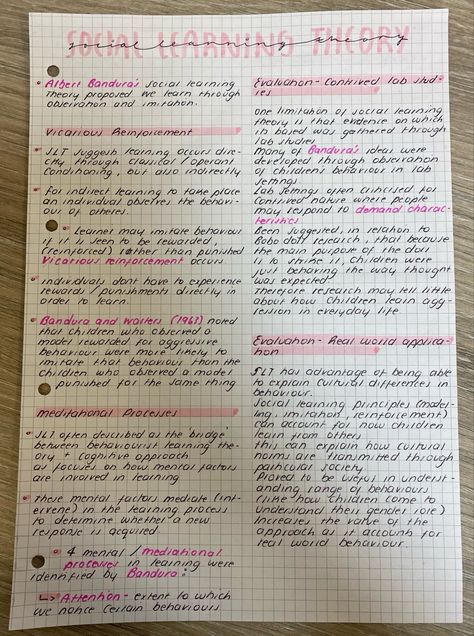 SOCIAL LEARNING THEORY
social learning theory
Albert Bandura's social learning
theory proposed we learn through
observation and imitation.
Vicarious Reinforcement
SLT suggests learning occurs dire-
ctly through classical / operant
conditioning, but also indirectly
for indirect learning to take place
an individual observes the behavi-
our of others.
Learner may imitate behaviour
if it is seen to be rewarded,
(reinforced) rather than punished
Vicarious reinforcement occurs
individuals dont have to experience
rewards / punishments directly in
order to learn.
Bandura and Walters (1963) noted
that children who observed a
model rewarded for aggressive
behaviour were more likely to
imitate that behaviour than the
children who observed a model
punished for the same thing
Mediational Processes
SLT often described as the 'bridge'
between behaviourist learning the-
ory + cognitive approach
as focuses on how mental factors
are involved in learning
these mental factors mediate (int-
ervene) in the learning process
to determine whether a new
response is acquired.
4 mental / mediational
processes in learning were
identified by Bandura:
↳ Attention - extent to which
we notice certain behaviours
Evaluation - Contrived lab stud-
ies
one limitation of social learning
theory is that evidence on which
its based was gathered through
lab studies
Many of Bandura's ideas were
developed through observation
of children's behaviour in lab
settings
Lab settings often criticised for
contrived nature where people
may respond to demand charac-
teristics.
Been suggested, in relation to
Bobo doll research, that because
the main purpose of the doll
is to strike it, children were
just behaving the way thought
was expected.
Therefore research may tell little
about how children learn agg-
ression in everyday life.
Evaluation - Real world applica-
tion
SLT has advantage of being able
to explain cultural differences in
behaviour.
Social learning principles (model-
ing, imitation, reinforcement)
can account for how children
learn from others
this can explain how cultural
norms are transmitted through
particular society
Proved to be useful in underst-
anding range of behaviours
(like how children come to
understand their gender role)
Increases the value of the
approach as it account for
real world behaviour.